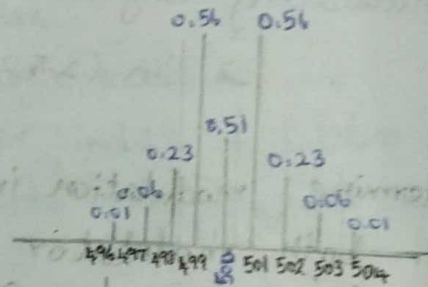 0.56 0.56
0.51
0.23 0.23
0.06 0.06
0.01 0.01
496 497 498 499 500 501 502 503 504